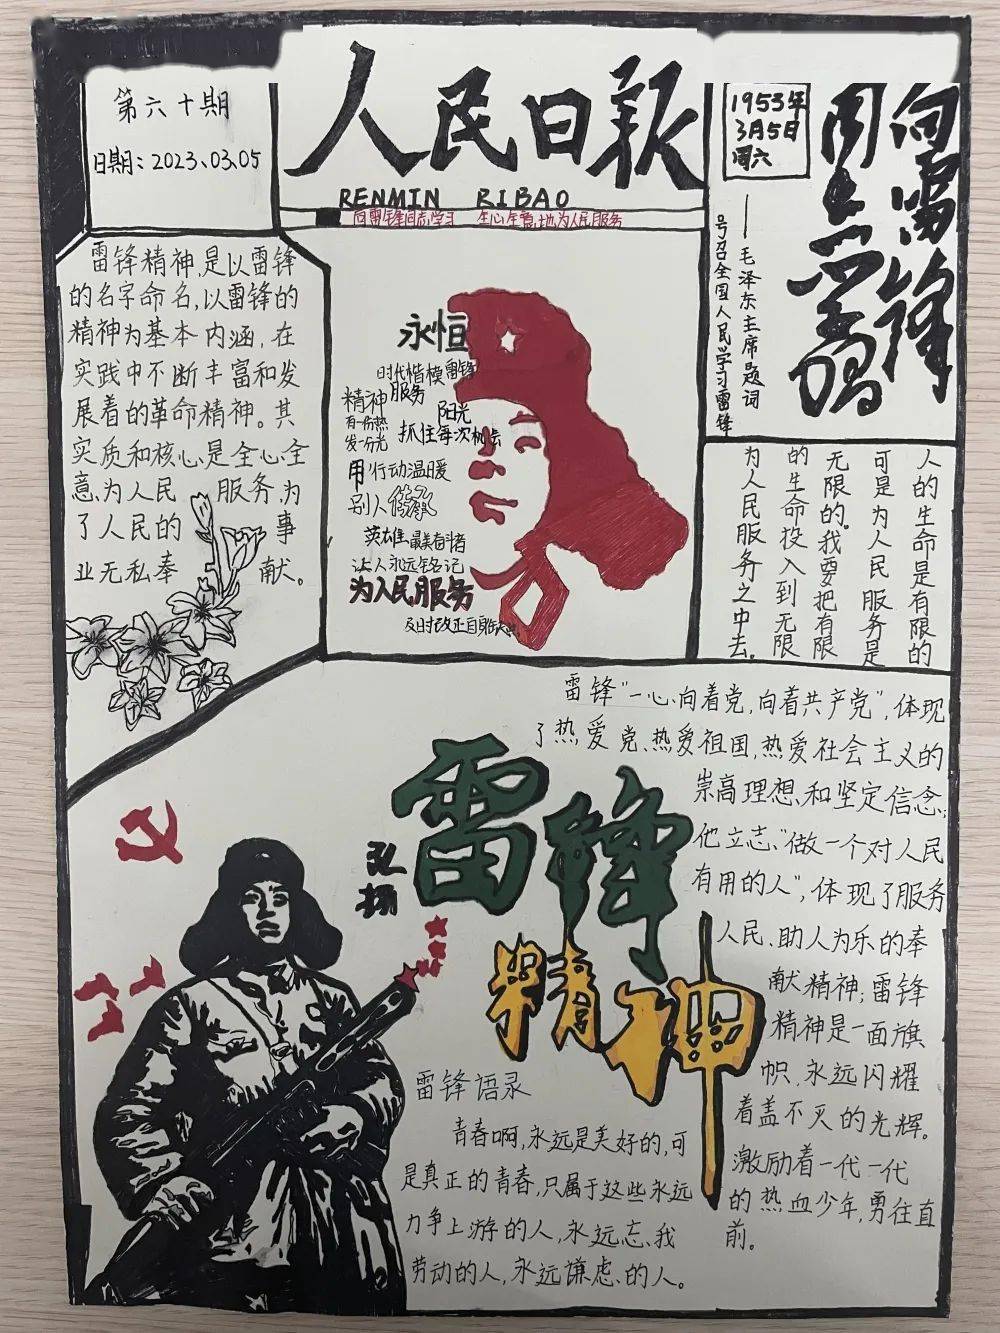 第六十期
日期：2023、03.05
人民日报
RENMIN RIBAO
向雷锋同志学习 全心全意地为人民服务
1953年
3月5日
周六
向雷锋
——毛泽东主席题词
号召全国人民学习雷锋
雷锋精神,是以雷锋
的名字命名,以雷锋的
精神为基本内涵,在
实践中不断丰富和发
展着的革命精神。其
实质和核心是全心全
意为人民服务,为
了人民的事
业无私奉献。
永恒
时代楷模雷锋
精神 服务
有一份热 阳光
发一份光 抓住每次机会
用行动温暖
别人 传承
英雄 最美奋斗者
让人永远铭记
为人民服务
及时改正自身
人的生命是有限的
可是为人民服务是
无限的。我要把有限
的生命投入到无限
为人民服务之中去。
雷锋“一心向着党,向着共产党”,体现
了热爱党、热爱祖国,热爱社会主义的
崇高理想、和坚定信念;
他立志“做一个对人民
有用的人”,体现了服务
人民、助人为乐的奉
献精神;雷锋
精神是一面旗
帜,永远闪耀
着盖不灭的光辉。
激励着一代一代
的热血少年,勇往直
前。
弘扬
雷锋
精神
雷锋语录
青春啊,永远是美好的,可
是真正的青春,只属于这些永远
力争上游的人,永远忘我
劳动的人,永远谦虚的人。